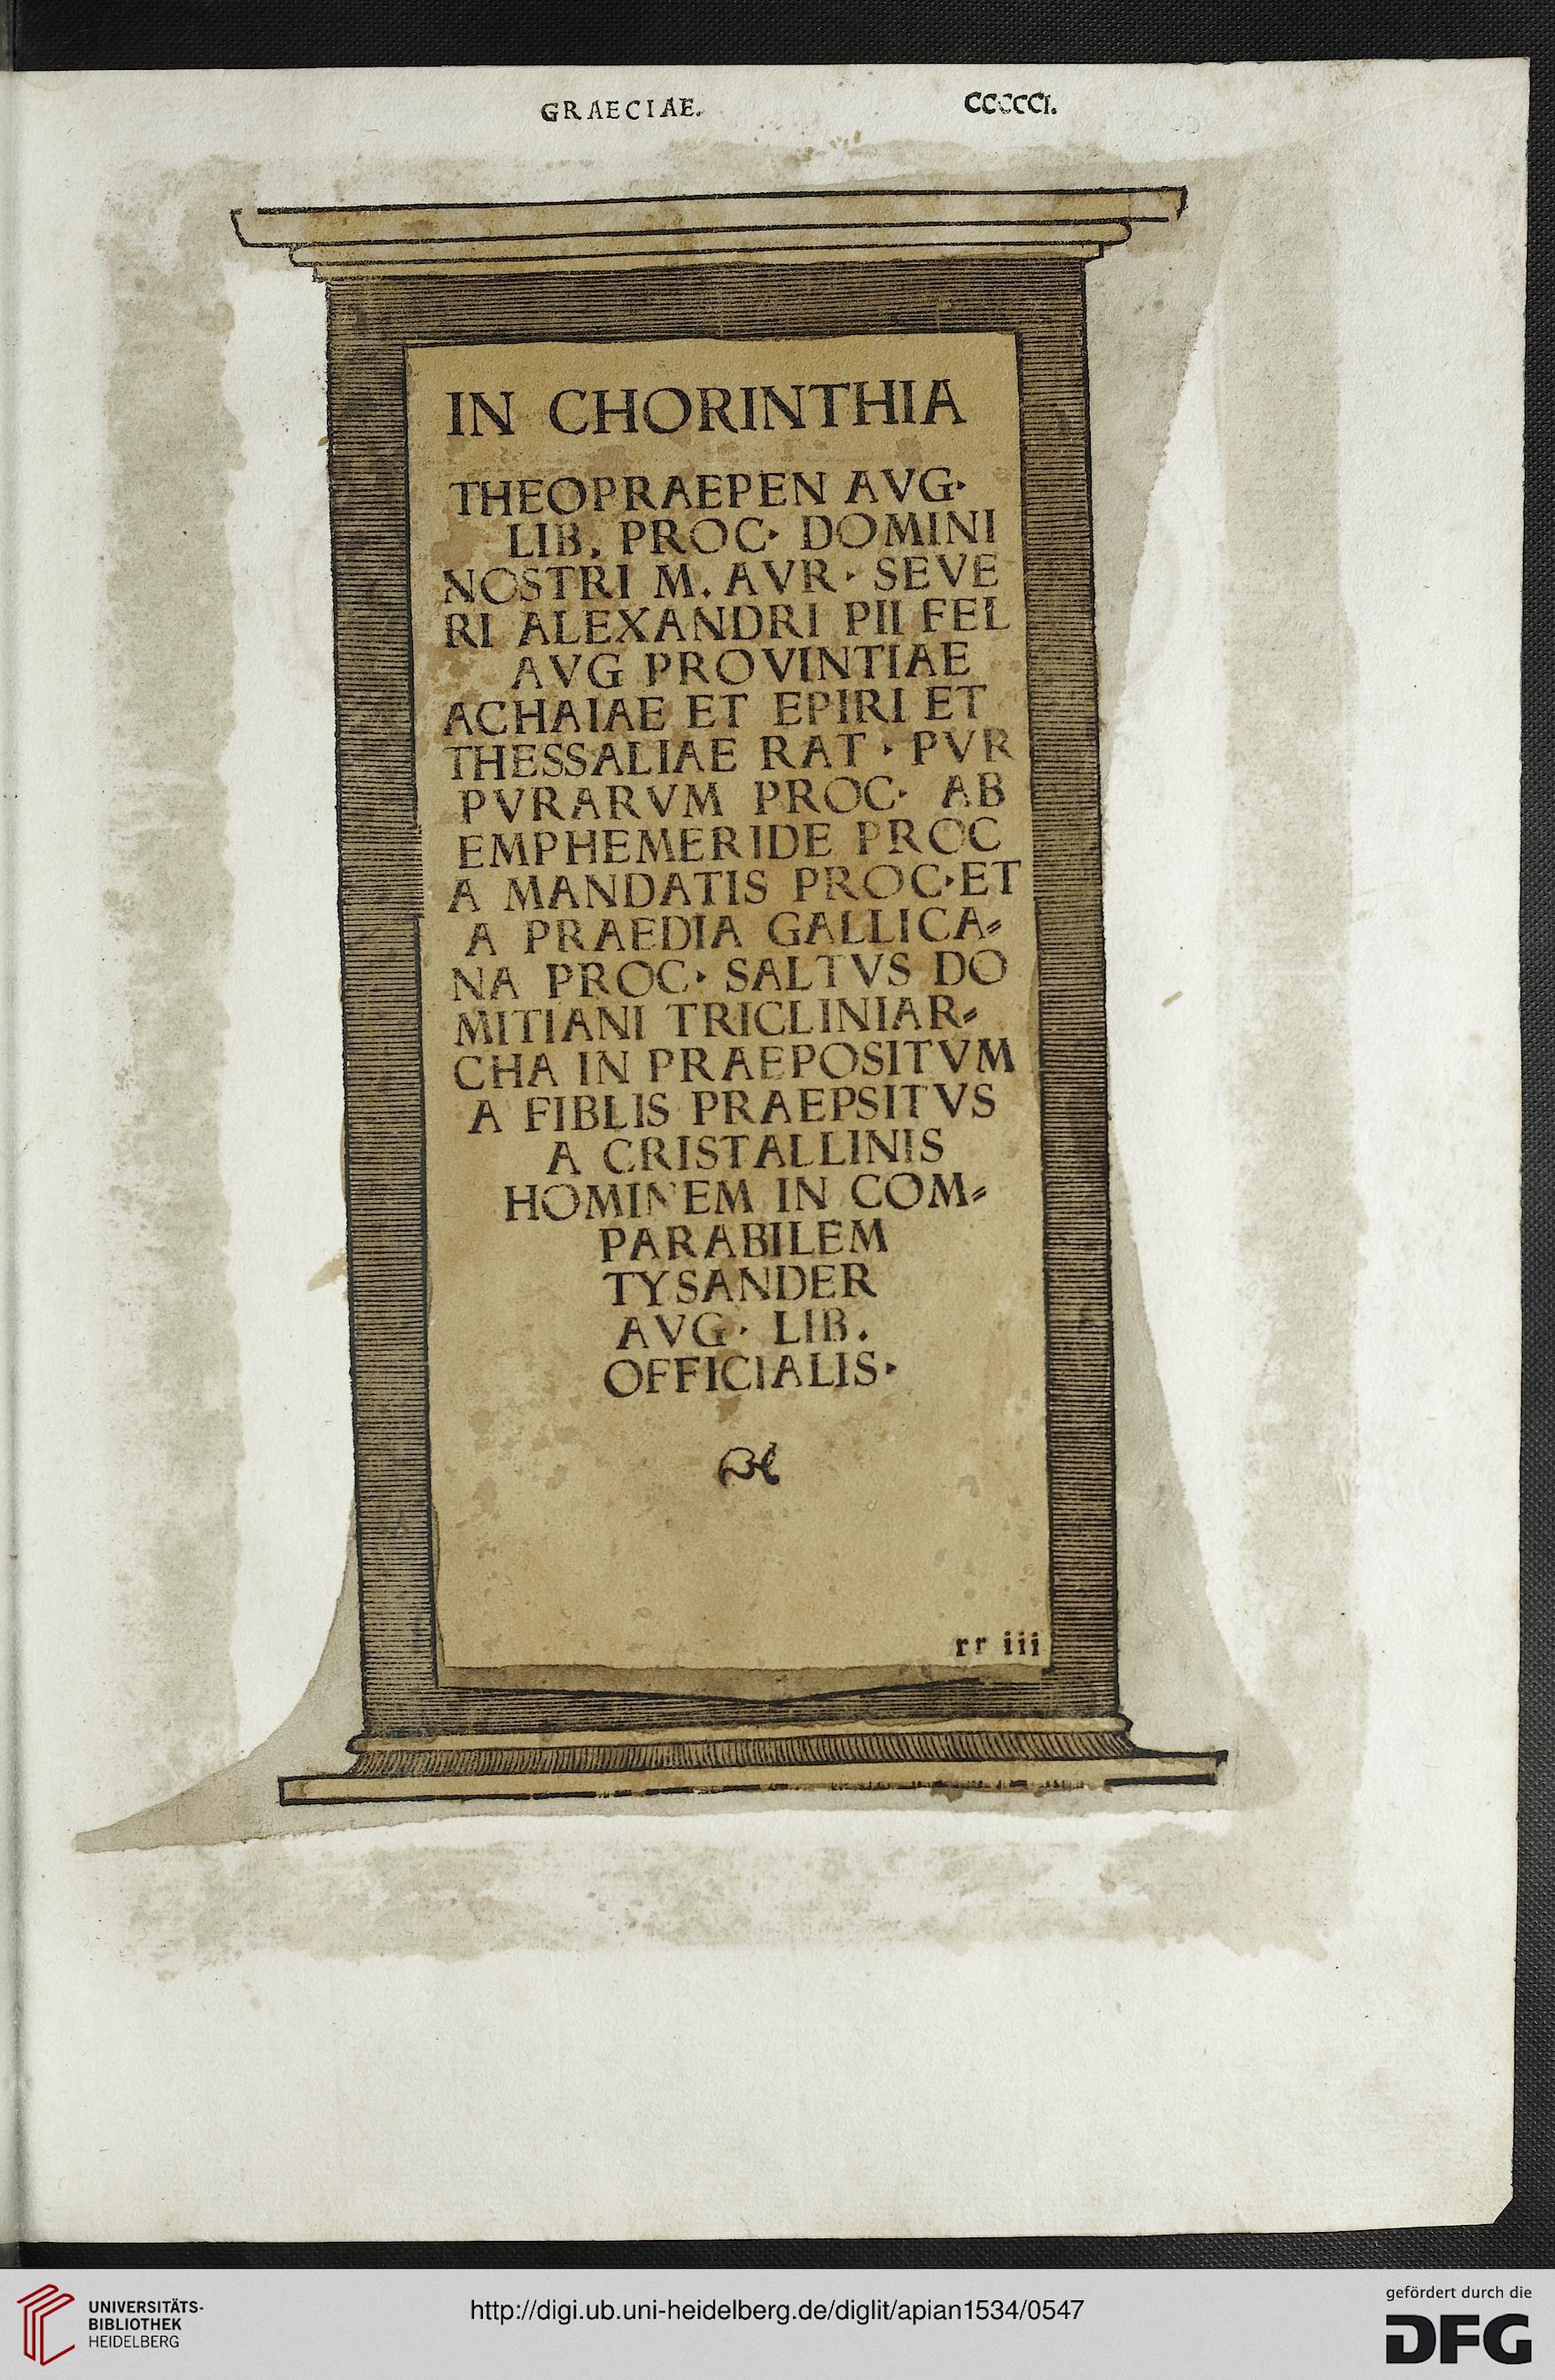 GRAECIAE. CCCCCI.
IN CHORINTHIA
THEOPRAEPEN AVG·
LIB. PROC· DOMINI
NOSTRI M. AVR· SEVE
RI ALEXANDRI PII FEL
AVG PROVINTIAE
ACHAIAE ET EPIRI ET
THESSALIAE RAT· PVR
PVRARVM PROC· AB
EMPHEMERIDE PROC
A MANDATIS PROC·ET
A PRAEDIA GALLICA⸗
NA PROC· SALTVS DO
MITIANI TRICLINIAR⸗
CHA IN PRAEPOSITVM
A FIBLIS PRAEPSITVS
A CRISTALLINIS
HOMINEM IN COM⸗
PARABILEM
TYSANDER
AVG· LIB.
OFFICIALIS·
rr iii
UNIVERSITÄTS-
BIBLIOTHEK
HEIDELBERG
http://digi.ub.uni-heidelberg.de/diglit/apian1534/0547
gefördert durch die
DFG